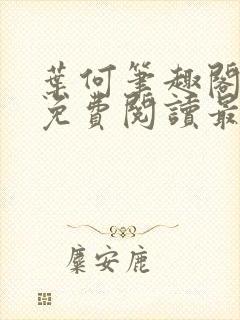 葉何筆趣閣
免費閱讀最
麋安鹿